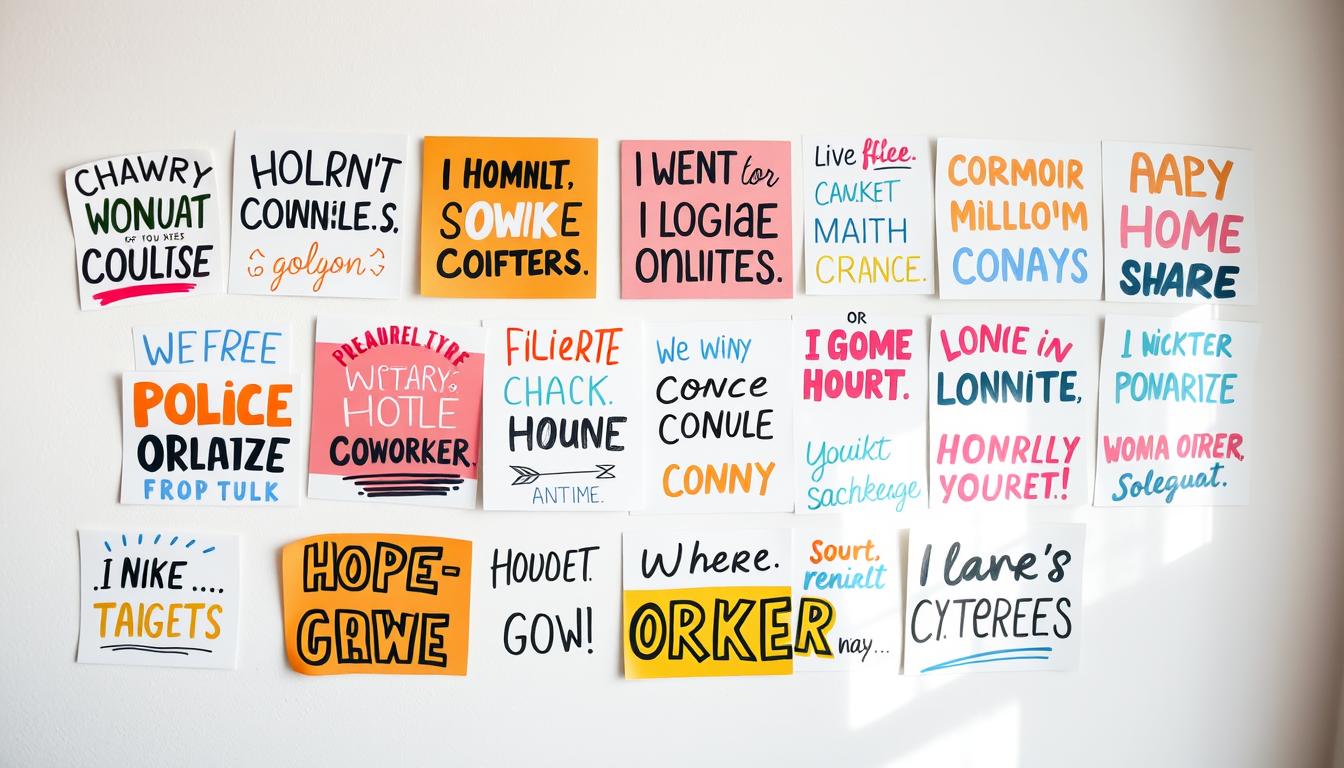 CHAWRY
WONUAT
COULISE
HOLRN'T
COWNILE.S.
golgon
I HOMNLT,
SOWIKE
COIFTERS.
I WENT for
I LOGIAE
ONLIITES.
Live
CAN.KET
MAITH
CRANCE.
CORMOIR
MiLLLO'M
CONAYS
AAPY
HOME
SHARE
WE FREE
POLiCE
ORLAIZE
FROP TULK
WPTARY:
HOTLE
COWORKER.
FiLieRTE
CHACK.
HOUNE
ANTIME.
We WiNY
CONCE
CONULE
CONNY
OR
I GOME
HOURT.
Youikt
sachkeage
LONIE iN
LONNITE,
HONRLLY
YOURET.!
I NICKTER
PONARIZE
WOMA OTRER,
Soleguat.
.I NIKE ....
TAIGETS
HOPE-
GAWE
HOUDET.
GOW!
Where.
ORKER
Sourt,
renialt
nay...
I lane's
CY.TEREES